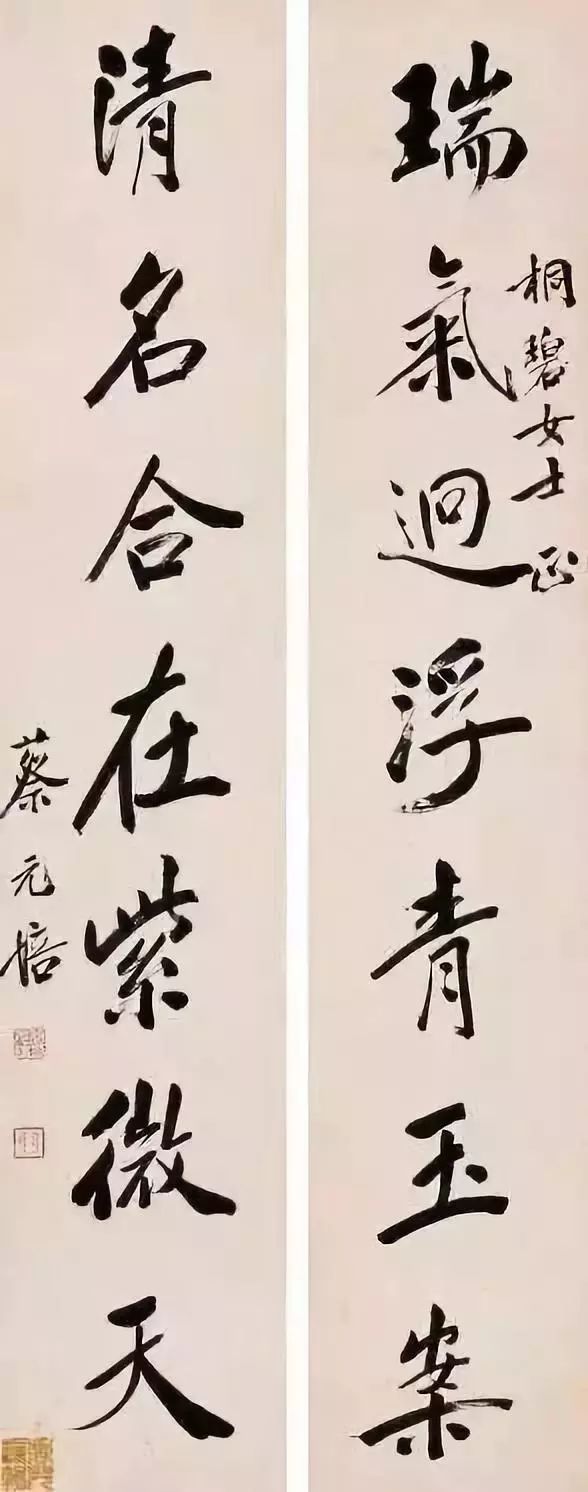 桐碧女士正
瑞氣迥浮青玉案
清名合在紫微天
蔡元培